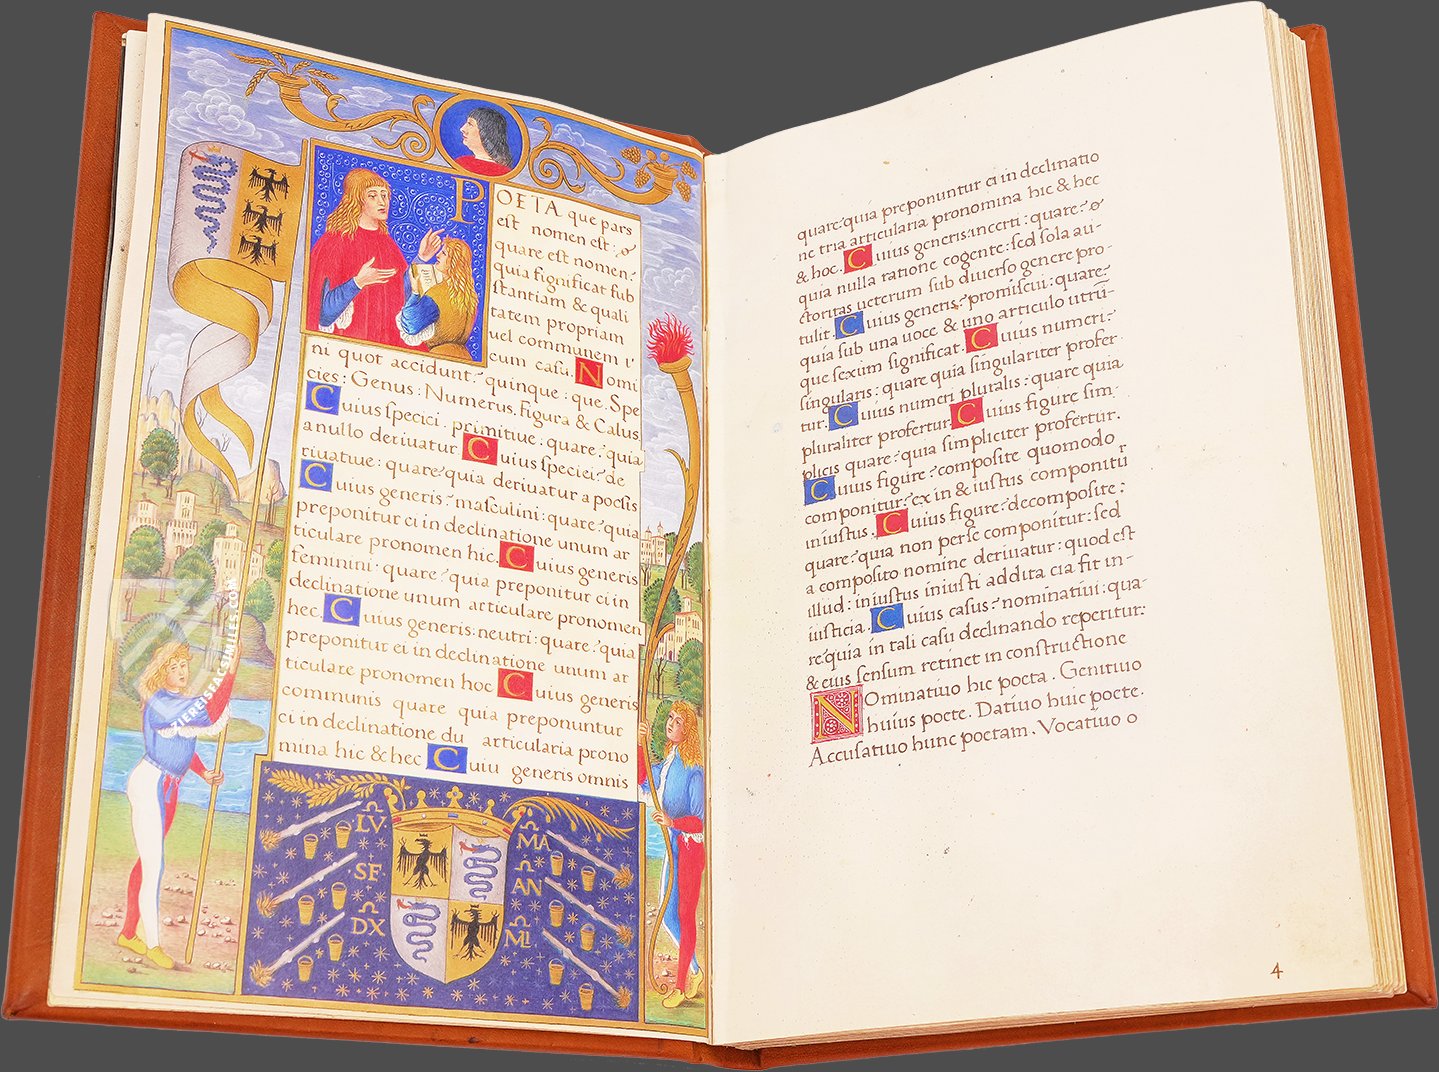 P
OETA que pars
est nomen est: o
quare est nomen?
quia significat sub
stantiam & quali
tatem propriam
uel communem t'
cum casu. Nomi
ni quot accidunt? quinque: que. Spe
cies: Genus: Numerus. Figura & Casus.
Cuius speciei. primitiue: quare? quia
a nullo deriuatur Cuius speciei? de
riuatiue: quare? quia deriuatur a poesis
Cuius generis? masculini: quare? quia
preponitur ei in declinatione unum ar
ticulare pronomen hic. Cuius generis
feminini: quare? quia preponitur ei in
declinatione unum articulare pronomen
hec. Cuius generis: neutri: quare? quia
preponitur ei in declinatione unum ar
ticulare pronomen hoc Cuius generis
communis quare quia preponuntur
ei in declinatione du articularia prono
mina hic & hec Cuiu generis omnis
LV MA
SF AN
DX MI
ZIEREISFACSIMILES.COM
quare? quia preponuntur ei in declinatio
ne tria articularia pronomina hic & hec
& hoc. Cuius generis: incerti: quare? o
quia nulla ratione cogente: sed sola au-
ctoritas ueterum sub diuerso genere pro-
tulit. Cuius generis? promiscui: quare?
quia sub una uoce & uno articulo utrũ-
que sexum significat. Cuius numeri?
singularis: quare quia singulariter profer
tur. Cuius numeri pluralis: quare quia
pluraliter profertur. Cuius figure sim-
plicis quare? quia simpliciter profertur.
Cuius figure? composite quomodo
componitur? ex in & iustus componitur
iniustus. Cuius figure? decomposite:
quare? quia non per se componitur: sed
a composito nomine deriuatur: quod est
illud: iniustus iniusti addita cia fit in-
iusticia. Cuius casus? nominatiui: qua-
re? quia in tali casu declinando reperitur:
& eius sensum retinet in constructione
NOminatiuo hic poeta. Genitiuo
huius poete. Datiuo huic poete.
Accusatiuo hunc poetam. Vocatiuo o
4